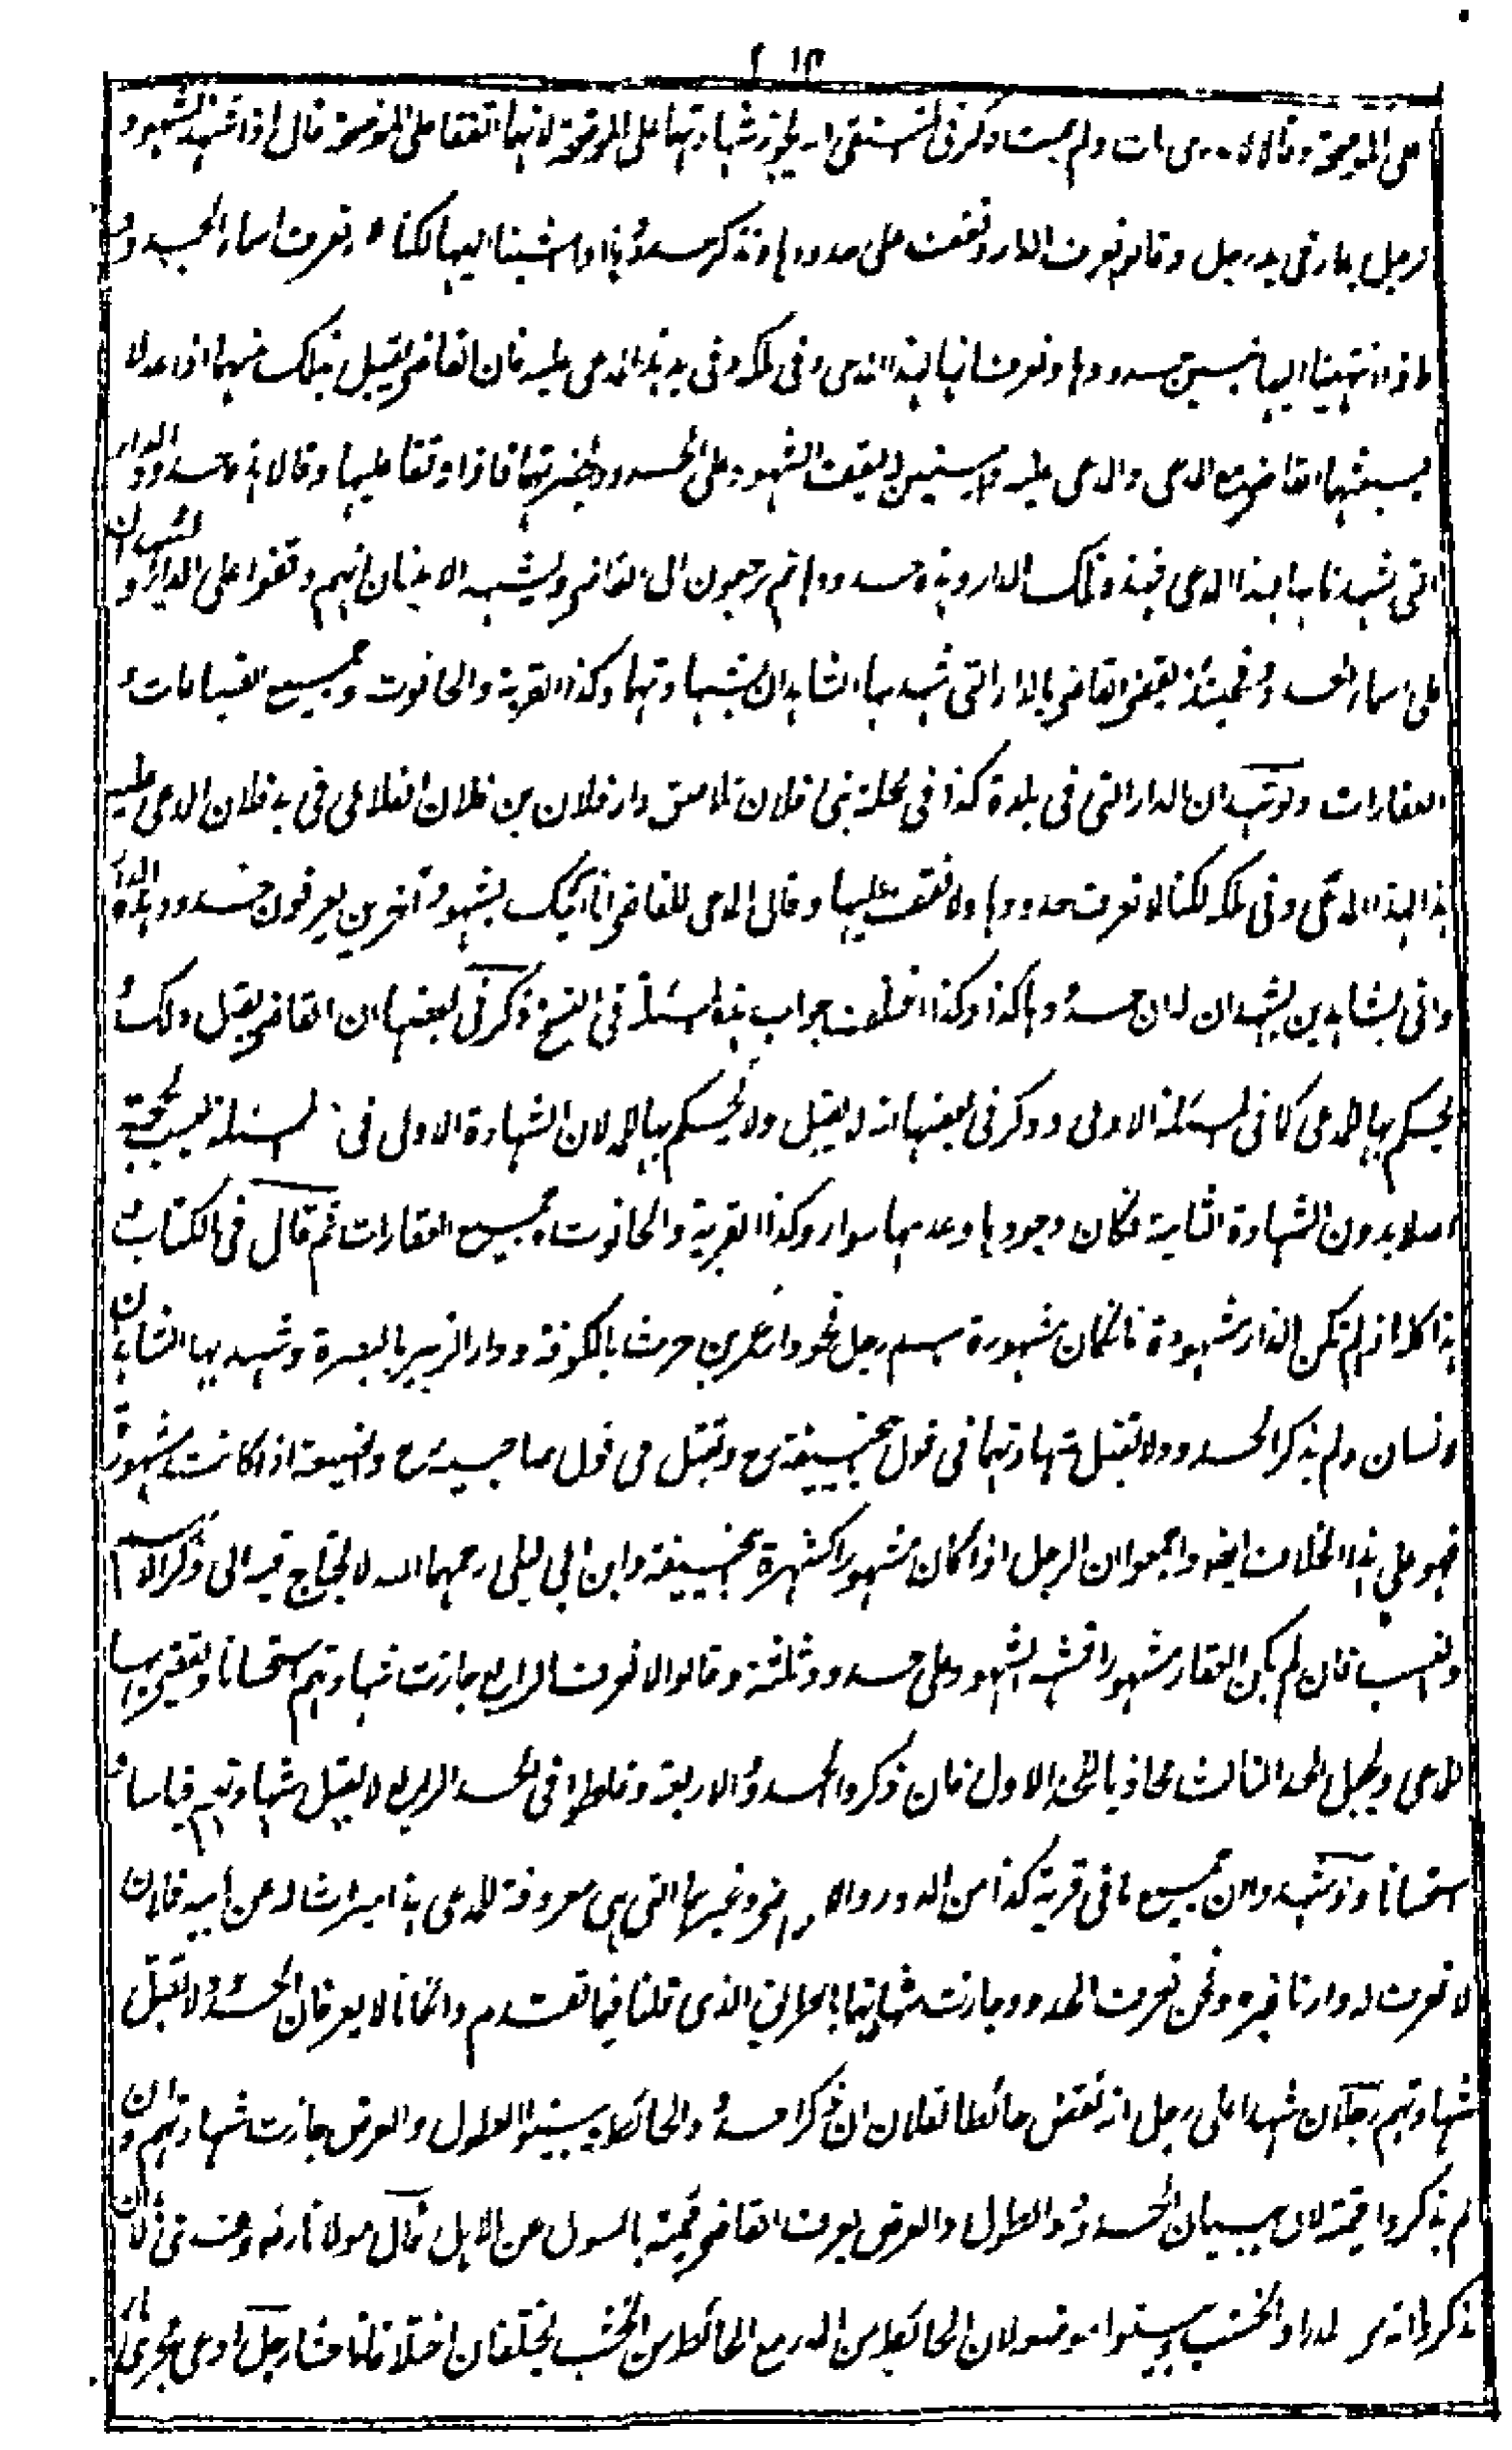 على الموضحة وقالا لا ندري مات ولم يمت وذكر في المنتقى انه يجوز شهادتهما على الموضحة لانهما اتفقا على الموضحة قال اذا شهد الشهود
لرجل بدار في يد رجل وقالوا نعرف الدار ونقف على حدودها اذا مشينا اليها لكنا لا نعرف اسماء الحدود
فان القاضي يقبل ذلك منهما اذا عدلا
القاضي مع المدعى والمدعى عليه وامينين ليقف الشهود على الحدود بحضرتهما فاذا وقفا عليها وقالا هذه حدود الدار
التي شهدنا بها لهذا المدعى فهذه تلك الدار وهذه حدودها ثم يرجعون الى القاضي ويشهد الامينان انهم وقفوا على الدار وشهدا
على اسماء الحدود فحينئذ يقضي القاضي بالدار التي شهد بها الشاهدان بشهادتهما وكذا القرية والحانوت وجميع الضياعات و
العقارات ولو شهدا ان الدار التي في بلدة كذا في محلة بني فلان تلاصق دار فلان بن فلان الفلاني في يد فلان المدعى عليه
هذا لهذا المدعى وفي ملكه لكنا لا نعرف حدودها ولا نقف عليها وقال المدعى للقاضي انا اتيك بشهود آخرين يعرفون حدود هذه الدار
واتى بشاهدين يشهدان ان حدودها كذا وكذا اختلف جواب هذه المسئلة في النسخ ذكر في بعضها ان القاضي يقبل ذلك و
يحكم بها للمدعى كما في المسئلة الاولى وذكر في بعضها انه لا يقبل ولا يحكم بها له لان الشهادة الاولى في المسئلة ليست بحجة
اصلا بدون الشهادة الثانية فكان وجودها وعدمها سواء وكذا القرية والحانوت وجميع العقارات ثم قال في الكتاب و
هذا كله اذا لم تكن الدار مشهورة فان كان مشهورة باسم رجل نحو دار عمرو بن حريث بالكوفة ودار الزبير بالبصرة وشهد بها الشاهدان
لانسان ولم يذكر الحدود لا تقبل شهادتهما في قول ابيحنيفة رح وتقبل في قول صاحبيه رح والضيعة اذا كانت مشهورة
فهو على هذا الخلاف ايضا واجمعوا ان الرجل اذا كان مشهورا كشهرة ابيحنيفة وابن ابي ليلى رحمهما الله لا يحتاج فيه الى ذكر الاسم
والنسب فان لم يكن العقار مشهورا فشهد الشهود على حدود ثلثة وقالوا لا نعرف الرابع جازت شهادتهم استحسانا ويقضى بها
للمدعى ويجعل الحد الثالث محاذيا للحد الاول فان ذكروا الحدود الاربعة وغلطوا في الحد الرابع لا يقبل شهادتهم قياسا و
استحسانا ولو شهدوا ان جميع ما في قرية كذا من الدور والاراضي وغيرها التي هي معروفة للمدعى بها ميراث له عن ابيه فلان
لا نعرف له وارثا غيره ونحن نعرف الحدود جازت شهادتهما بالطريق الذي قلنا فيما تقدم واذا كانا لا يعرفان الحدود لا تقبل
شهادتهم رجلان شهدا على رجل انه نقض حائطا لفلان ان ذكرا حدود الحائط وبينوا الطول والعرض جازت شهادتهم وان
لم يذكروا قيمته لان ببيان الحدود والطول والعرض يعرف القاضي قيمته بالسؤال عن الاهل قال مولانا رضي الله عنه
او الخشب وبينوا موضعه لان الحائط من المدر مع الحائط من الخشب يختلفان اختلافا فاحشا رجل ادعى مجرى ماء